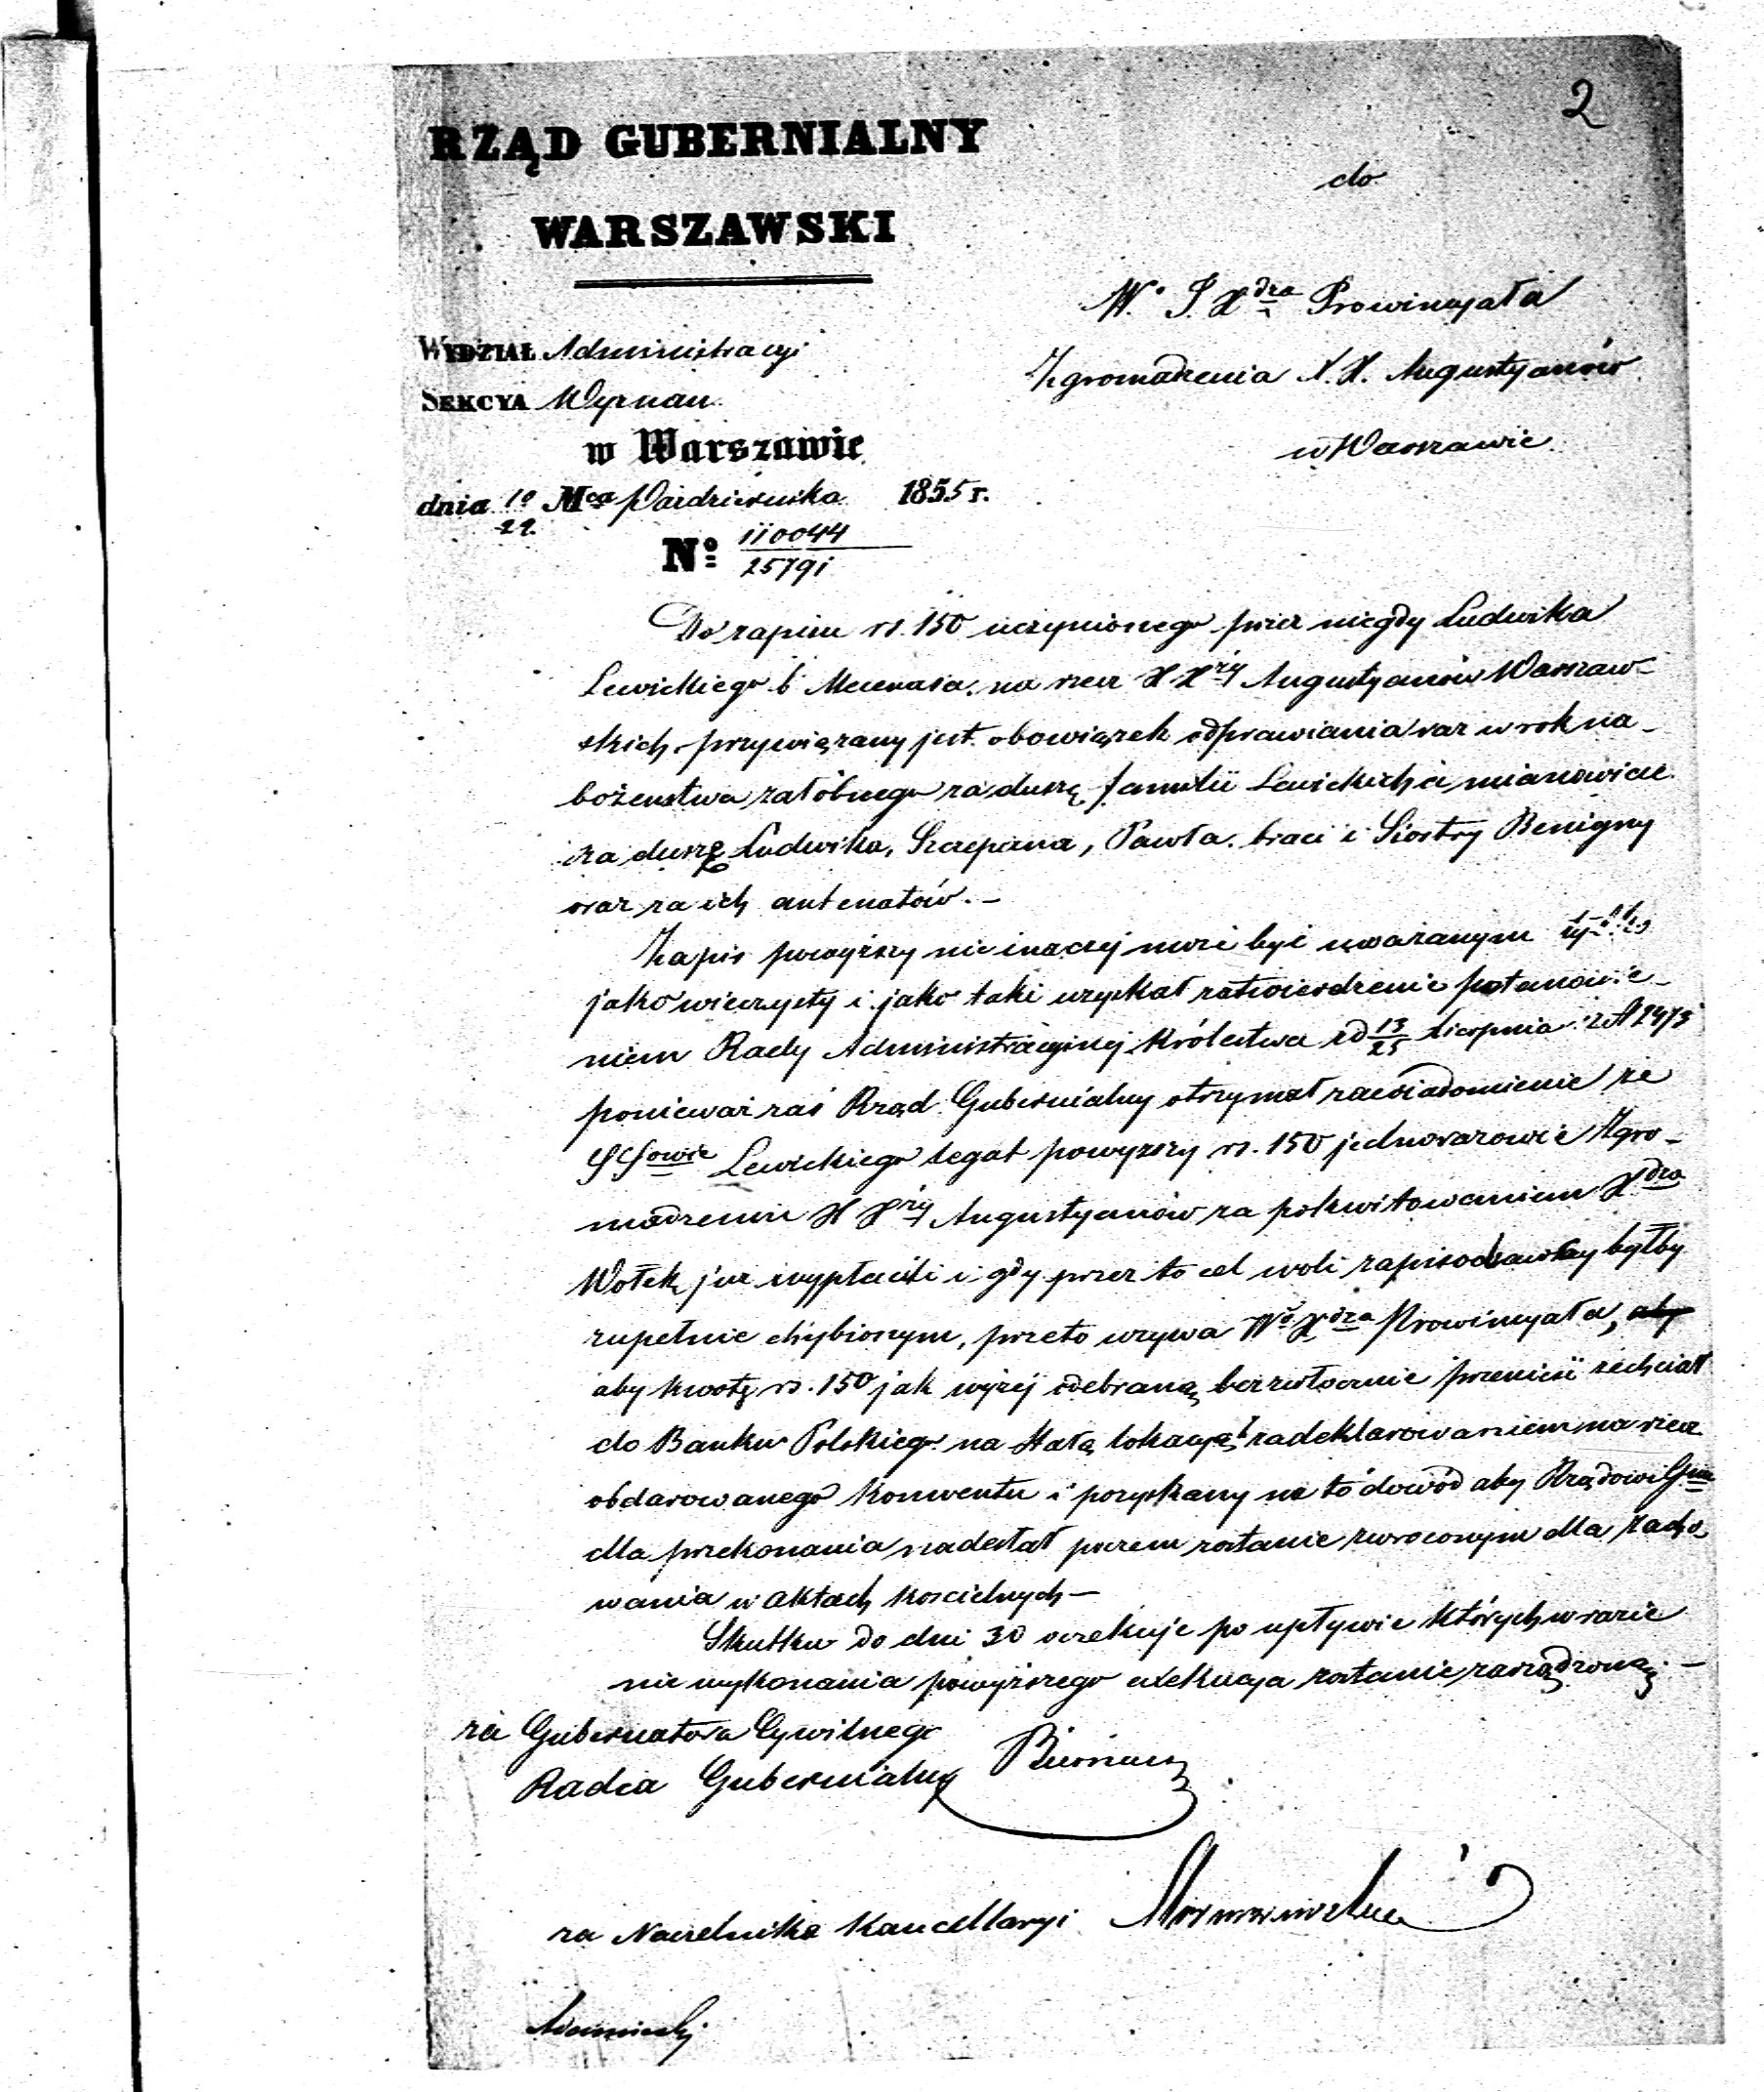 2
RZĄD GUBERNIALNY
WARSZAWSKI
do
W. J. Xdza Prowincyała
Zgromadzenia X. X. Augustyanów
w Warszawie
WYDZIAŁ Administracyi
SEKCYA Wyznań
w Warszawie
dnia 10/22 Mca Października 1855 r.
No 110044/25791
Do zapisu rs. 150 uczynionego przez niegdy Ludwika
Lewickiego b. Mecenasa na rzecz X Xży Augustyanów Warszaw-
skich przywiązany jest obowiązek odprawiania raz w rok na-
bożeństwa załóbnego za duszę familii Lewickich a mianowicie
za duszę Ludwika, Szczepana, Pawła braci i Siostry Benigny
oraz za ich antenatów. -
Zapis powyższy nie inaczej może być uważanym tylko
jako wieczysty i jako taki uzyskał zatwierdzenie postanowie-
niem Rady Administracyjnej Królestwa z d 13/25 Sierpnia
ponieważ zaś Rząd Gubernialny otrzymał zawiadomienie że
SSowie Lewickiego legat powyższy rs. 150 jednorazowie Zgro-
madzeniu X Xży Augustyanów za pokwitowaniem Xdza
Wołek już wypłacili i gdy przez to cel woli zapisodawcy byłby
zupełnie chybionym, przeto wzywa Wo Xdza Prowincyała, aby
aby kwotę rs. 150 jak wyżej odebraną bezzwłocznie przenieść zechciał
do Banku Polskiego na stałą lokacyą z zadeklarowaniem na rzecz
obdarowanego Konwentu i pozyskany na to dowód aby Rządowi Gumu
dla przekonania nadesłał poczem zostanie zwróconym dla zacho
wania w aktach kościelnych -
Skutku do dni 30 oczekuje po upływie których w razie
nie wykonania powyższego exekucya zostanie zarządzoną. -
za Gubernatora Cywilnego
Radca Gubernialny
za Naczelnika Kancellaryi